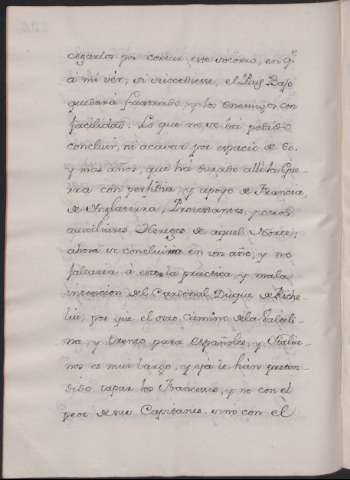 cegarlos por cortar este socorro, en q.e
á mi vér, si sucediesse, el Pais Bajo
quedará frustrado y los Enemigos con
facilidad. Lo que no se há podido
concluir, ni acavar por espacio de 60.
y mas años, que há durado alli la Gue-
rra con porfia, y apoyo de Francia,
de Inglaterra, Protestantes, y otros
auxiliares Hereges de aquel Norte;
ahora se concluiria en un año, y no
faltaria á esto la práctica y mala
intencion del Cardenal Duque de Riche-
lieu, por que el otro Camino de la Valteli-
na, y Trento para Españoles, y Italia-
nos es mui largo, y ya le hán preten-
dido tapar los Franceses, y no con el
peso de sus Capitanes, sino con él